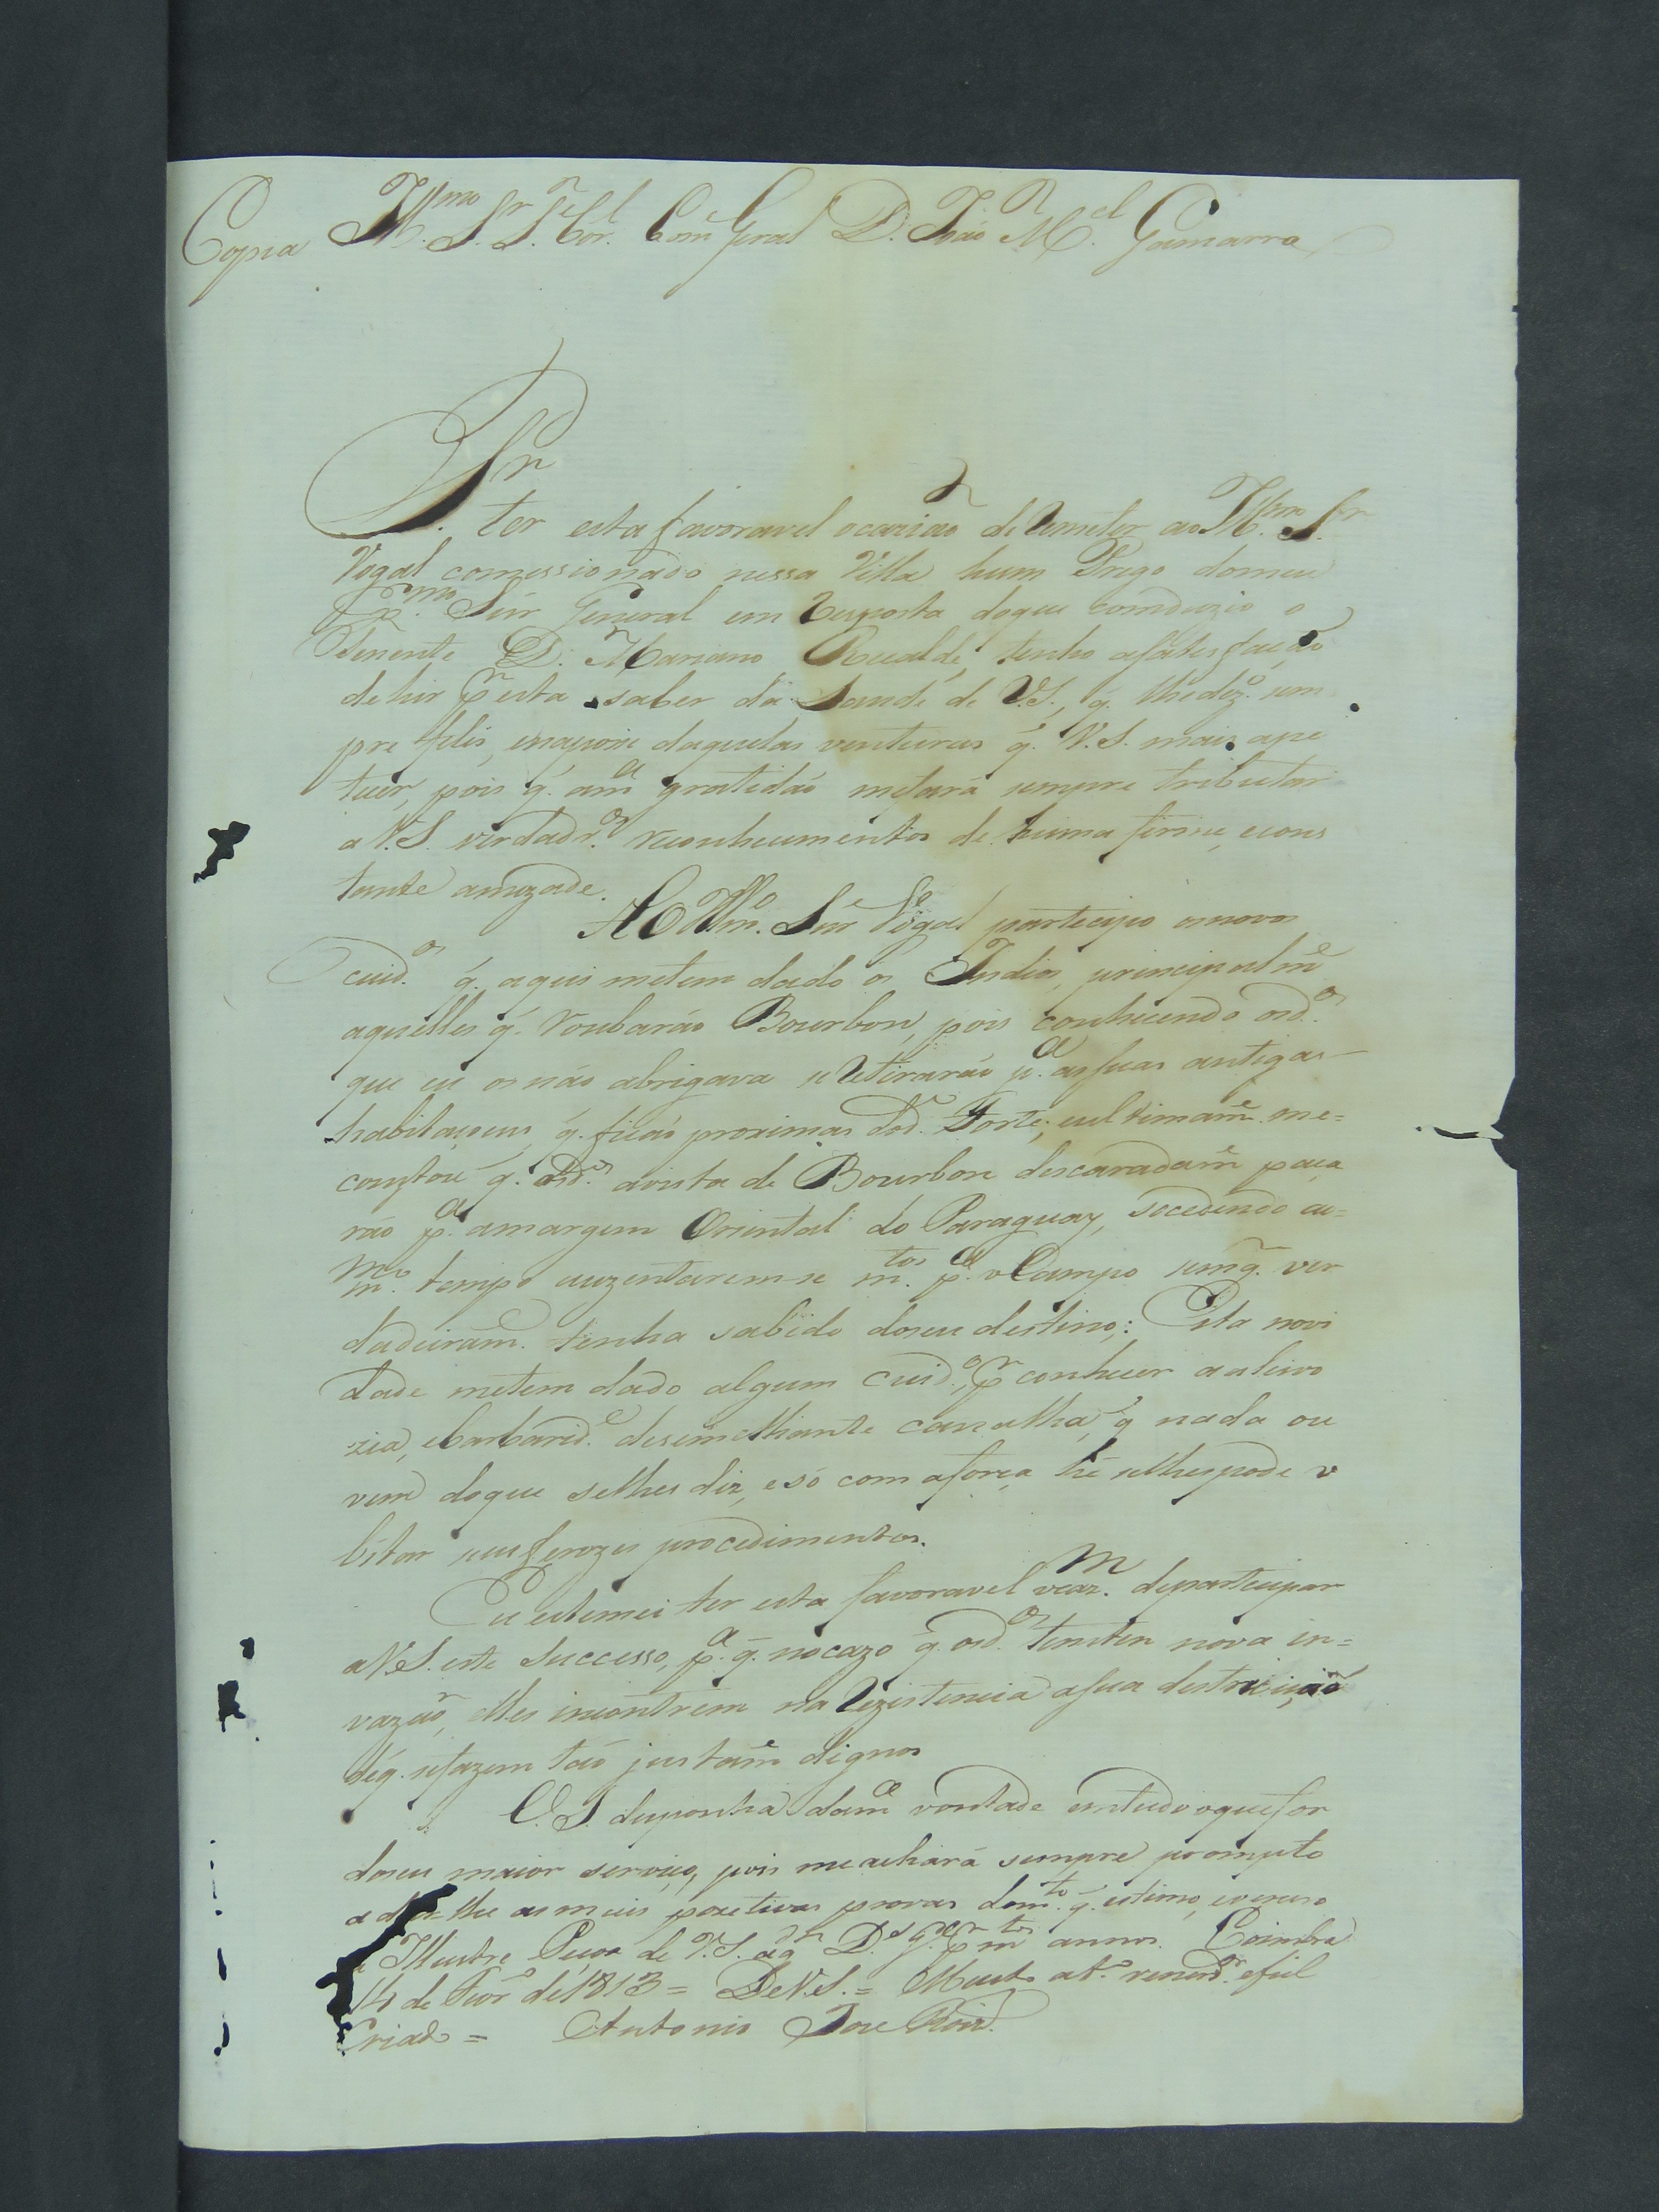 Copia Ill.mo S.r T.e Cor.l Com.e Geral D. João M.el Gamarra
S.r
Por ter esta favoravel ocazião de remeter ao Ill.mo S.r
Vogal comessionado nessa Villa hum Prego domeu
Ex.mo Sñr General em resposta doque comduzio o
Tenente D. Mariano Recalde, tenho asatisfação
de hir p.r esta saber da Saude de V.S., q. lhedez.o sem
pre felis, enapoze daquelas venturas q. V.S. mais ape
tecer, pois q. am.a gratidão mefará sempre tributar
a V.S. verdadr.os reconhecimentos de huma firme, econs
tante amizade.
Ao Illm.o Snr Vogal partecipo osnovos
cuid.os q. aqui metem dado os Indios, principalm.e
aquelles q. roubarão Bourbon, pois conhecendo osd.os
que eu osnão abrigava se retirarão p.a assuas antigas
habitaçoens, q. ficão proximas dod. Forte, eultimam.e me=
constou q. osd.os avista de Bourbon descaradam.e paça
rão p.a amargem Oriental do Paraguay, socedendo ao=
m.mo tempo auzentarem-se m.tos p.a oCampo semq. ver
dadeiram.e tenha sabido doseu destino; Esta novi
dade metem dado algum cuid.o, p.r conhecer aaleivo
zia, ebarbarid.e desemelhante canalha, q nada ou
vem doque selhes diz, esó com aforça hé selhespode v
bitar seusferozes procedimentos.
Eu estimei ter esta favoravel ocaz.m departecipar
aV.S. este Successo, p.a q. nocazo q. osd.os tentem nova in=
vazão, elles incontrem na rezistencia asua destruição
déq. sefazem tão justam.e dignos
V.S. disponha dam.a vontade emtudo oquefor
doseu maior serviço, pois meachará sempre prompto
a dar-lhe asmais pozetivas provas dom.to q. estimo, evenero
a Illustre Peçoa de V.S. aq.m D.s g.e p.r m.tos annos. Coimbra
14 de Fevr.o de 1813= DeV.S.= Muito at.o vener.or efiel
Criado= Antonio Joze Roiz.